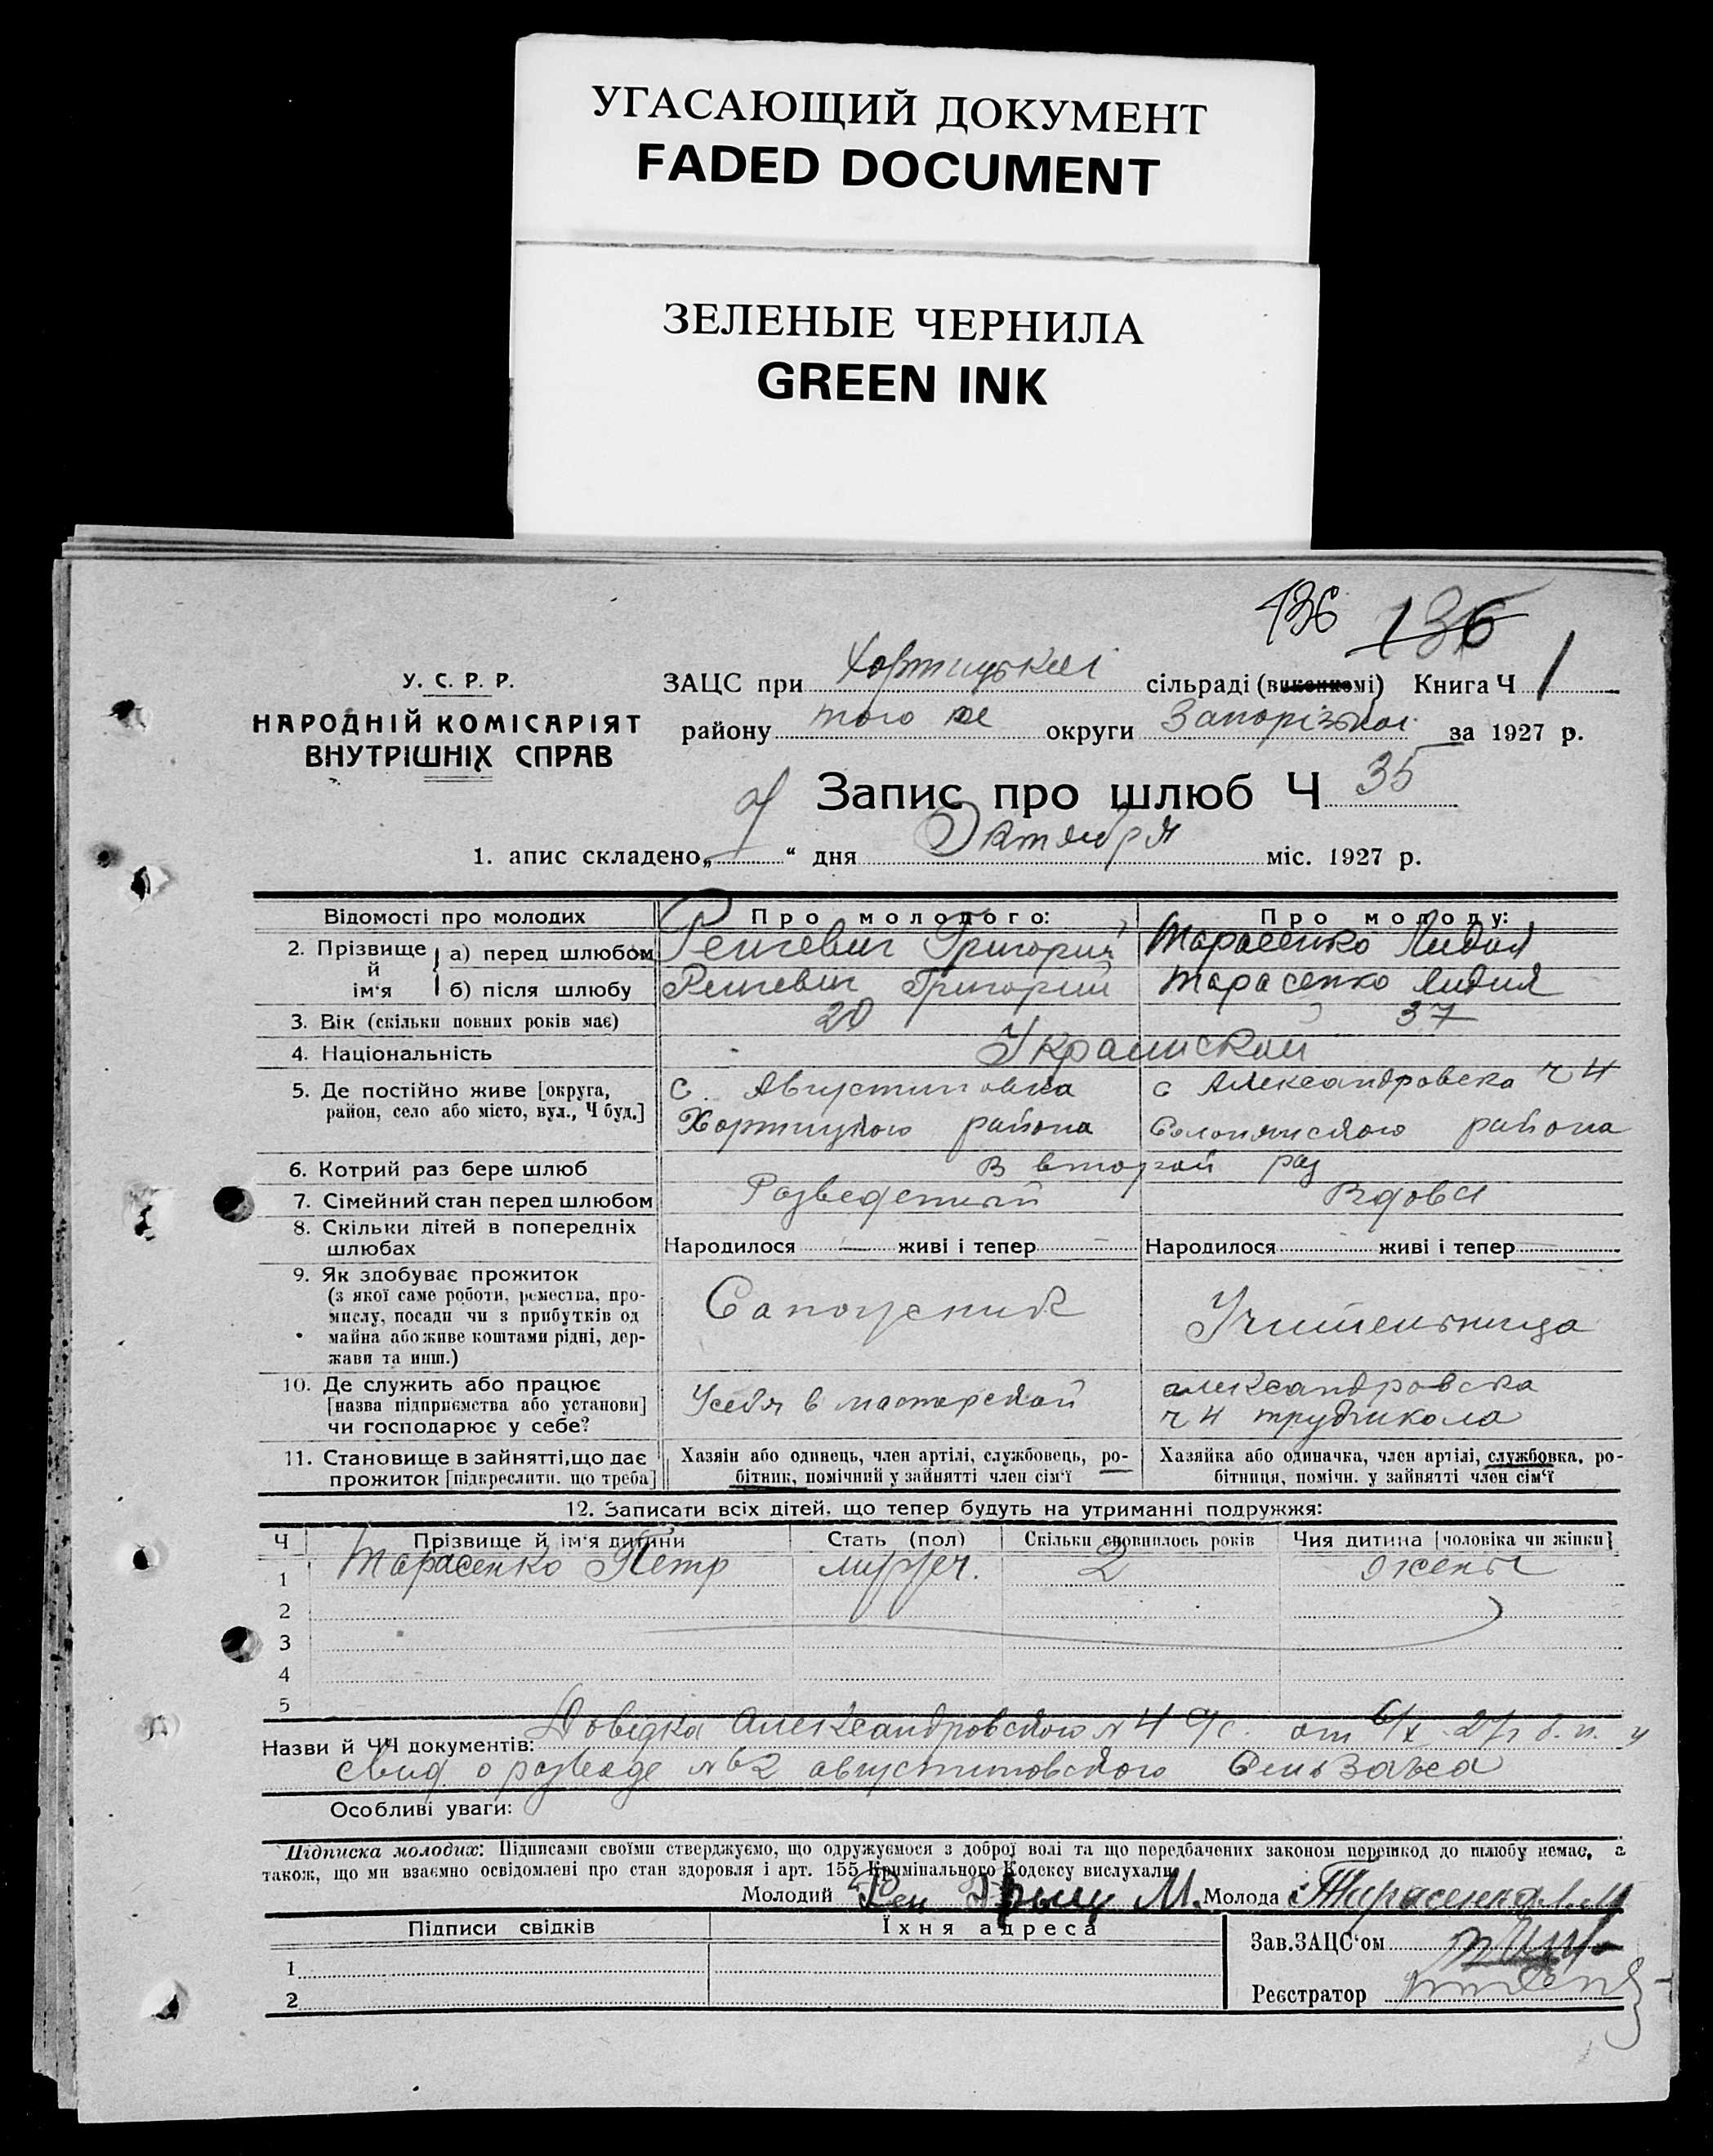 УГАСАЮЩИЙ ДОКУМЕНТ
FADED DOCUMENT
ЗЕЛЕНЫЕ ЧЕРНИЛА
GREEN INK
136 136
У. С. Р. Р.
НАРОДНІЙ КОМІСАРІЯТ
ВНУТРІШНІХ СПРАВ
ЗАЦС при Хортицькій сільраді (виконкомі) Книга Ч 1
району того же округи Запорізької за 1927 р.
Запис про шлюб Ч 35
1. апис складено „ “ дня Октября міс. 1927 р.
Відомості про молодих Про молодого: Про молоду:
2. Прізвище й ім'я а) перед шлюбом Григорий Тарасенко Лидия
б) після шлюбу Григорий Тарасенко Лидия
3. Вік (скільки повних років має) 20 37
4. Національність Украинской
5. Де постійно живе [округа, район, село або місто, вул., Ч буд.] с. Августиновка с Александровска ч 4
Хортицкого района района
6. Котрий раз бере шлюб В второй раз
7. Сімейний стан перед шлюбом Разведенный Вдова
8. Скільки дітей в попередніх шлюбах Народилося — живі і тепер — Народилося живі і тепер —
9. Як здобуває прожиток
(з якої саме роботи, ремества, про-
мислу, посади чи з прибутків од
майна або живе коштами рідні, дер-
жави та инш.)
Сапожник Учительница
10. Де служить або працює
[назва підприємства або установи]
чи господарює у себе?
У себя в мастерской Александровска
ч 4 трудшкола
11. Становище в зайнятті, що дає
прожиток [підкреслити. що треба]
Хазяін або одинець, член артілі, службовець, ро-
бітник, помічний у зайнятті член сім'ї
Хазяйка або одиначка, член артілі, службовка, ро-
бітниця, помічн. у зайнятті член сім'ї
12. Записати всіх дітей, що тепер будуть на утриманні подружжя:
Ч Прізвище й ім'я дитини Стать (пол) Скільки сповнилось років Чия дитина [чоловіка чи жінки]
1 Тарасенко Петр 2 жены
2
3
4
5
Назви й ЧЧ документів: Довідка Александровского № 4 с/с. от 6/X 27
свид о разводе № 62 августиновского
Особливі уваги:
Підписка молодих: Підписами своїми стверджуємо, що одружуємося з доброї волі та що передбачених законом перешкод до шлюбу немає, а
також, що ми взаємно освідомлені про стан здоровля і арт. 155 Кримінального Кодексу вислухали
Молодий Рен Грыц М. Молода Тарасенко
Підписи свідків Їхня адреса
Зав.ЗАЦС'ом
1
2
Реєстратор